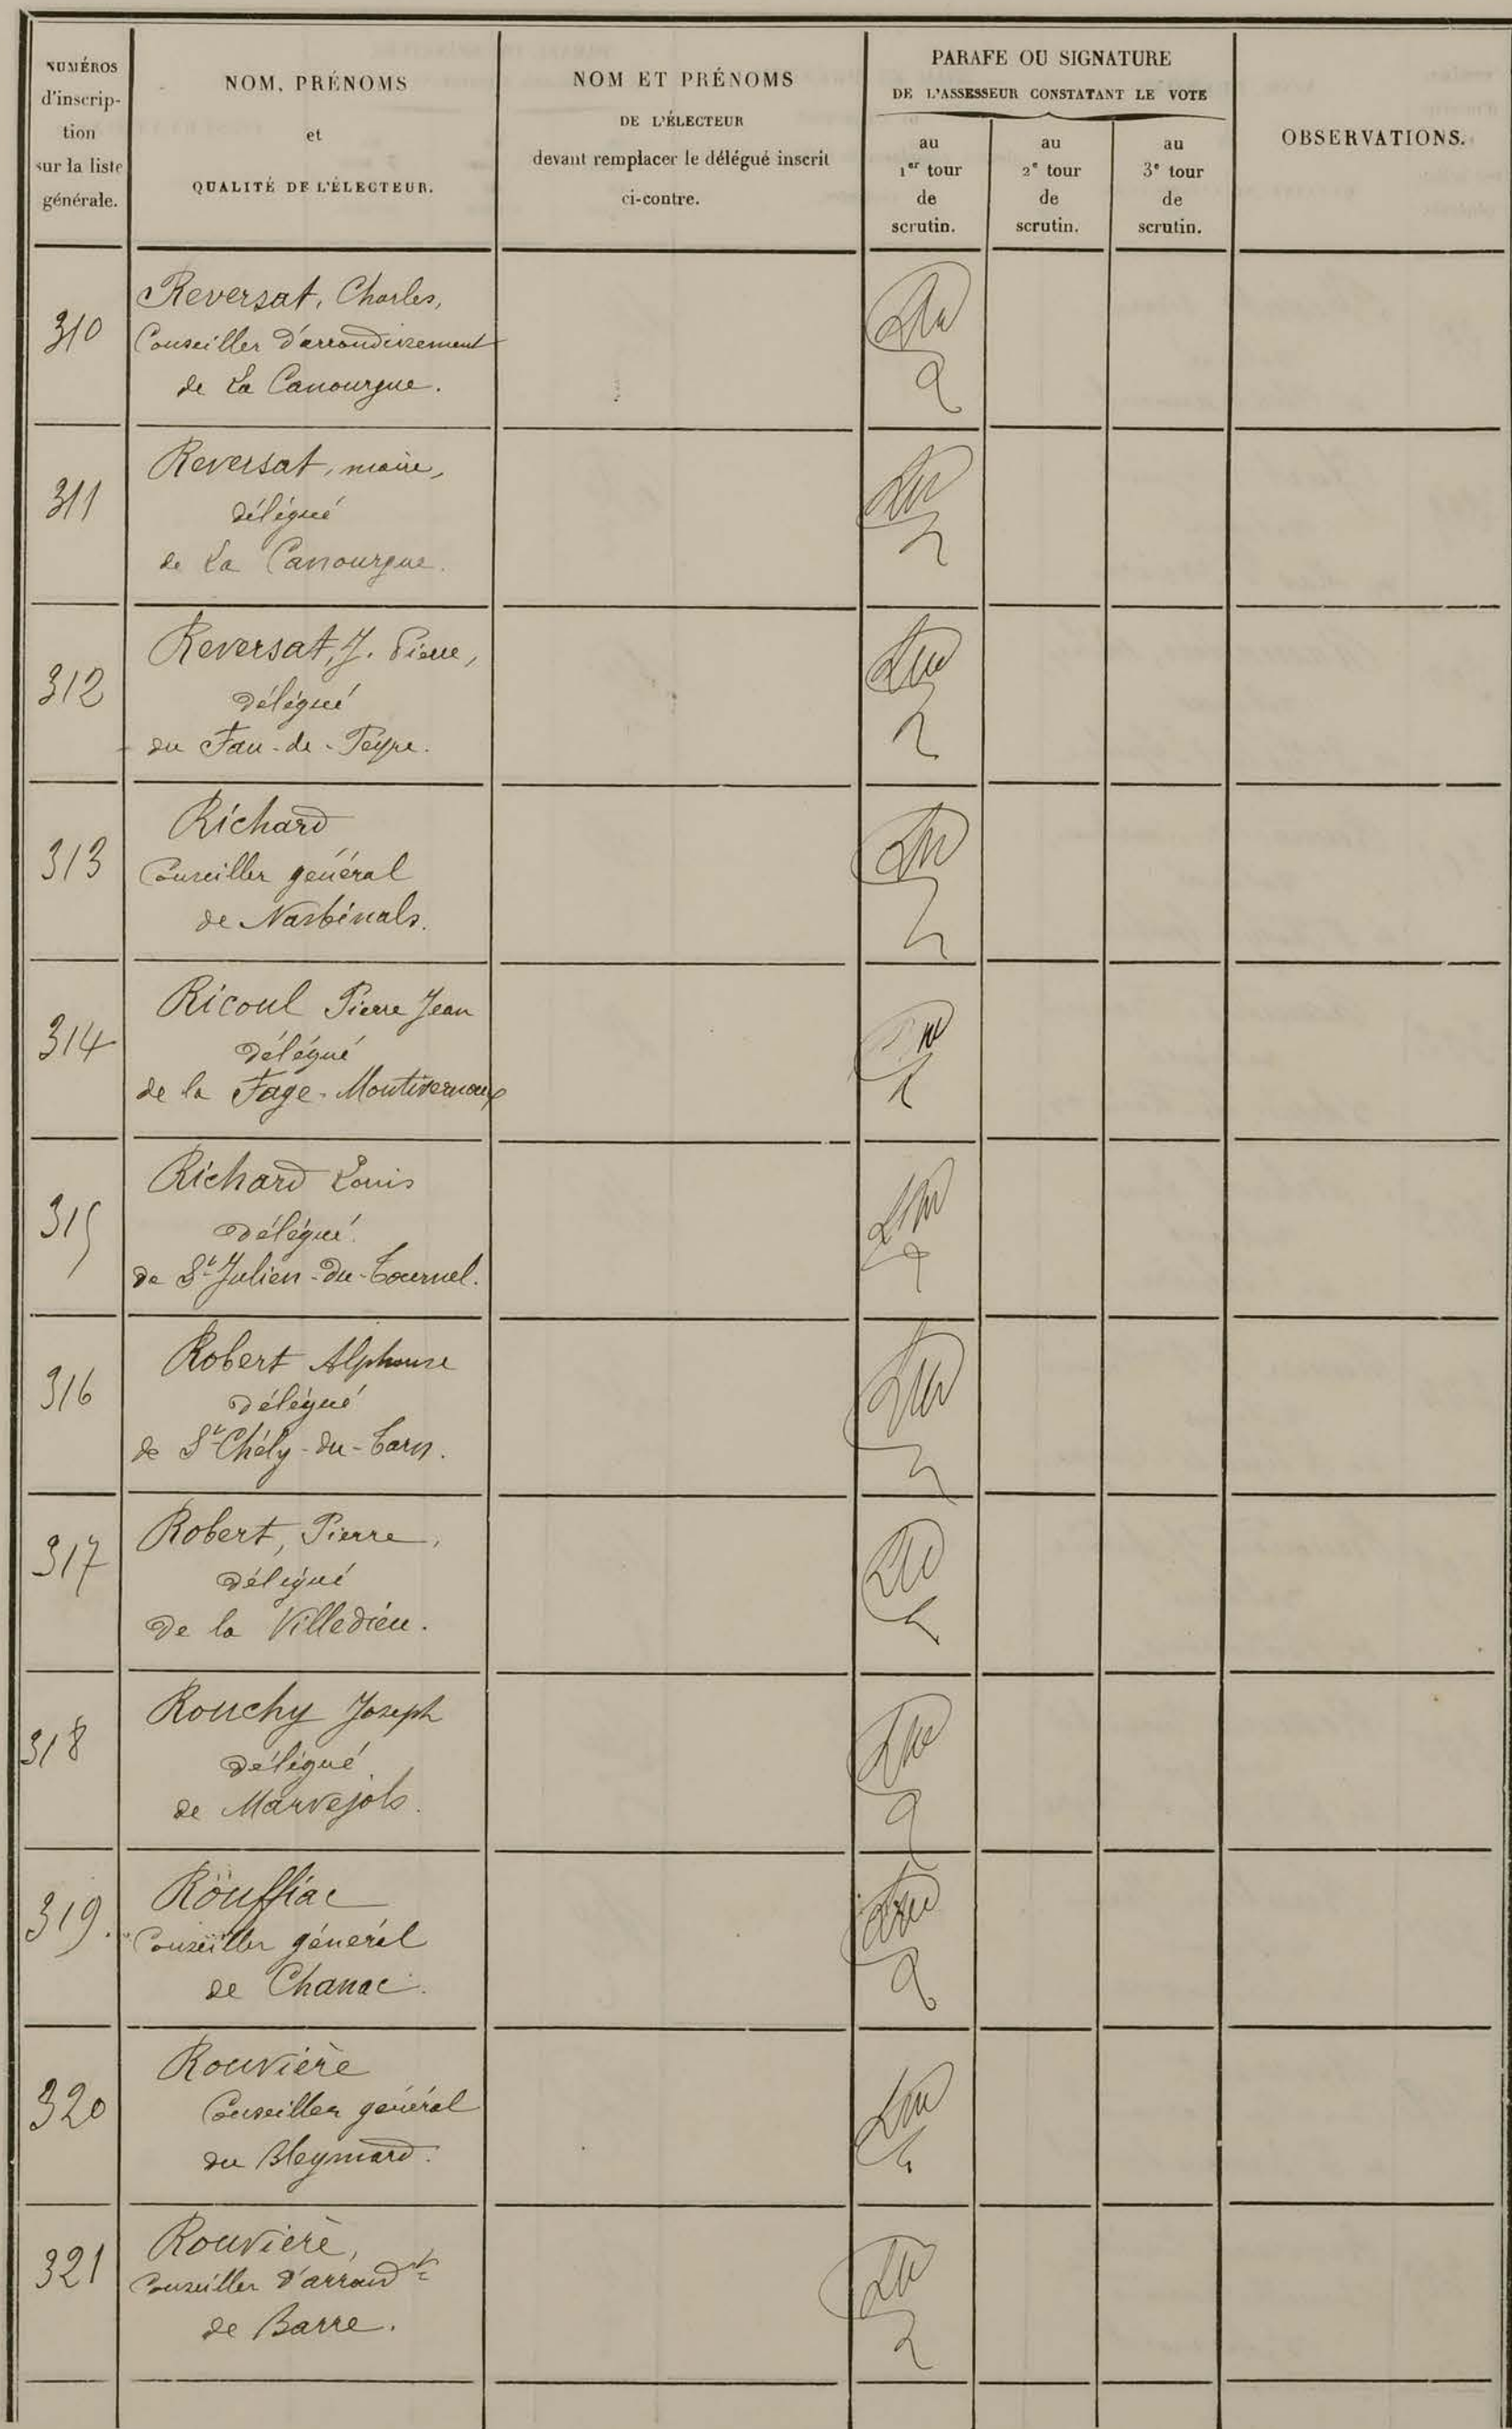 NUMÉROS
d'inscrip-
tion
sur la liste
générale.
NOM, PRÉNOMS
et
QUALITÉ DE L'ÉLECTEUR.
NOM ET PRÉNOMS
DE L'ÉLECTEUR
devant remplacer le délégué inscrit
ci-contre.
PARAFE OU SIGNATURE
DE L'ASSESSEUR CONSTATANT LE VOTE
au
1er tour
de
scrutin.
au
2e tour
de
scrutin.
au
3e tour
de
scrutin.
OBSERVATIONS.
310
Reversat, Charles,
Conseiller d'arrondissement
de La Canourgue.
311
Reversat, maire,
délégué
de La Canourgue.
312
Reversat, J. Pierre,
délégué
du Fau-de-Peyre.
313
Richard
Conseiller général
de Nasbinals.
314
Ricoul Pierre Jean
délégué
de la Fage-Montivernoux
315
Richard Louis
délégué
de St Julien-du-Tournel.
316
Robert Alphonse
délégué
de St Chély-du-Tarn.
317
Robert, Pierre,
délégué
de la Villedieu.
318
Rouchy Joseph
délégué
de Marvejols.
319.
Rouffiac
Conseiller général
de Chanac.
320
Rouvière
Conseiller général
du Bleymard.
321
Rouvière,
Conseiller d'arrondt
de Barre.